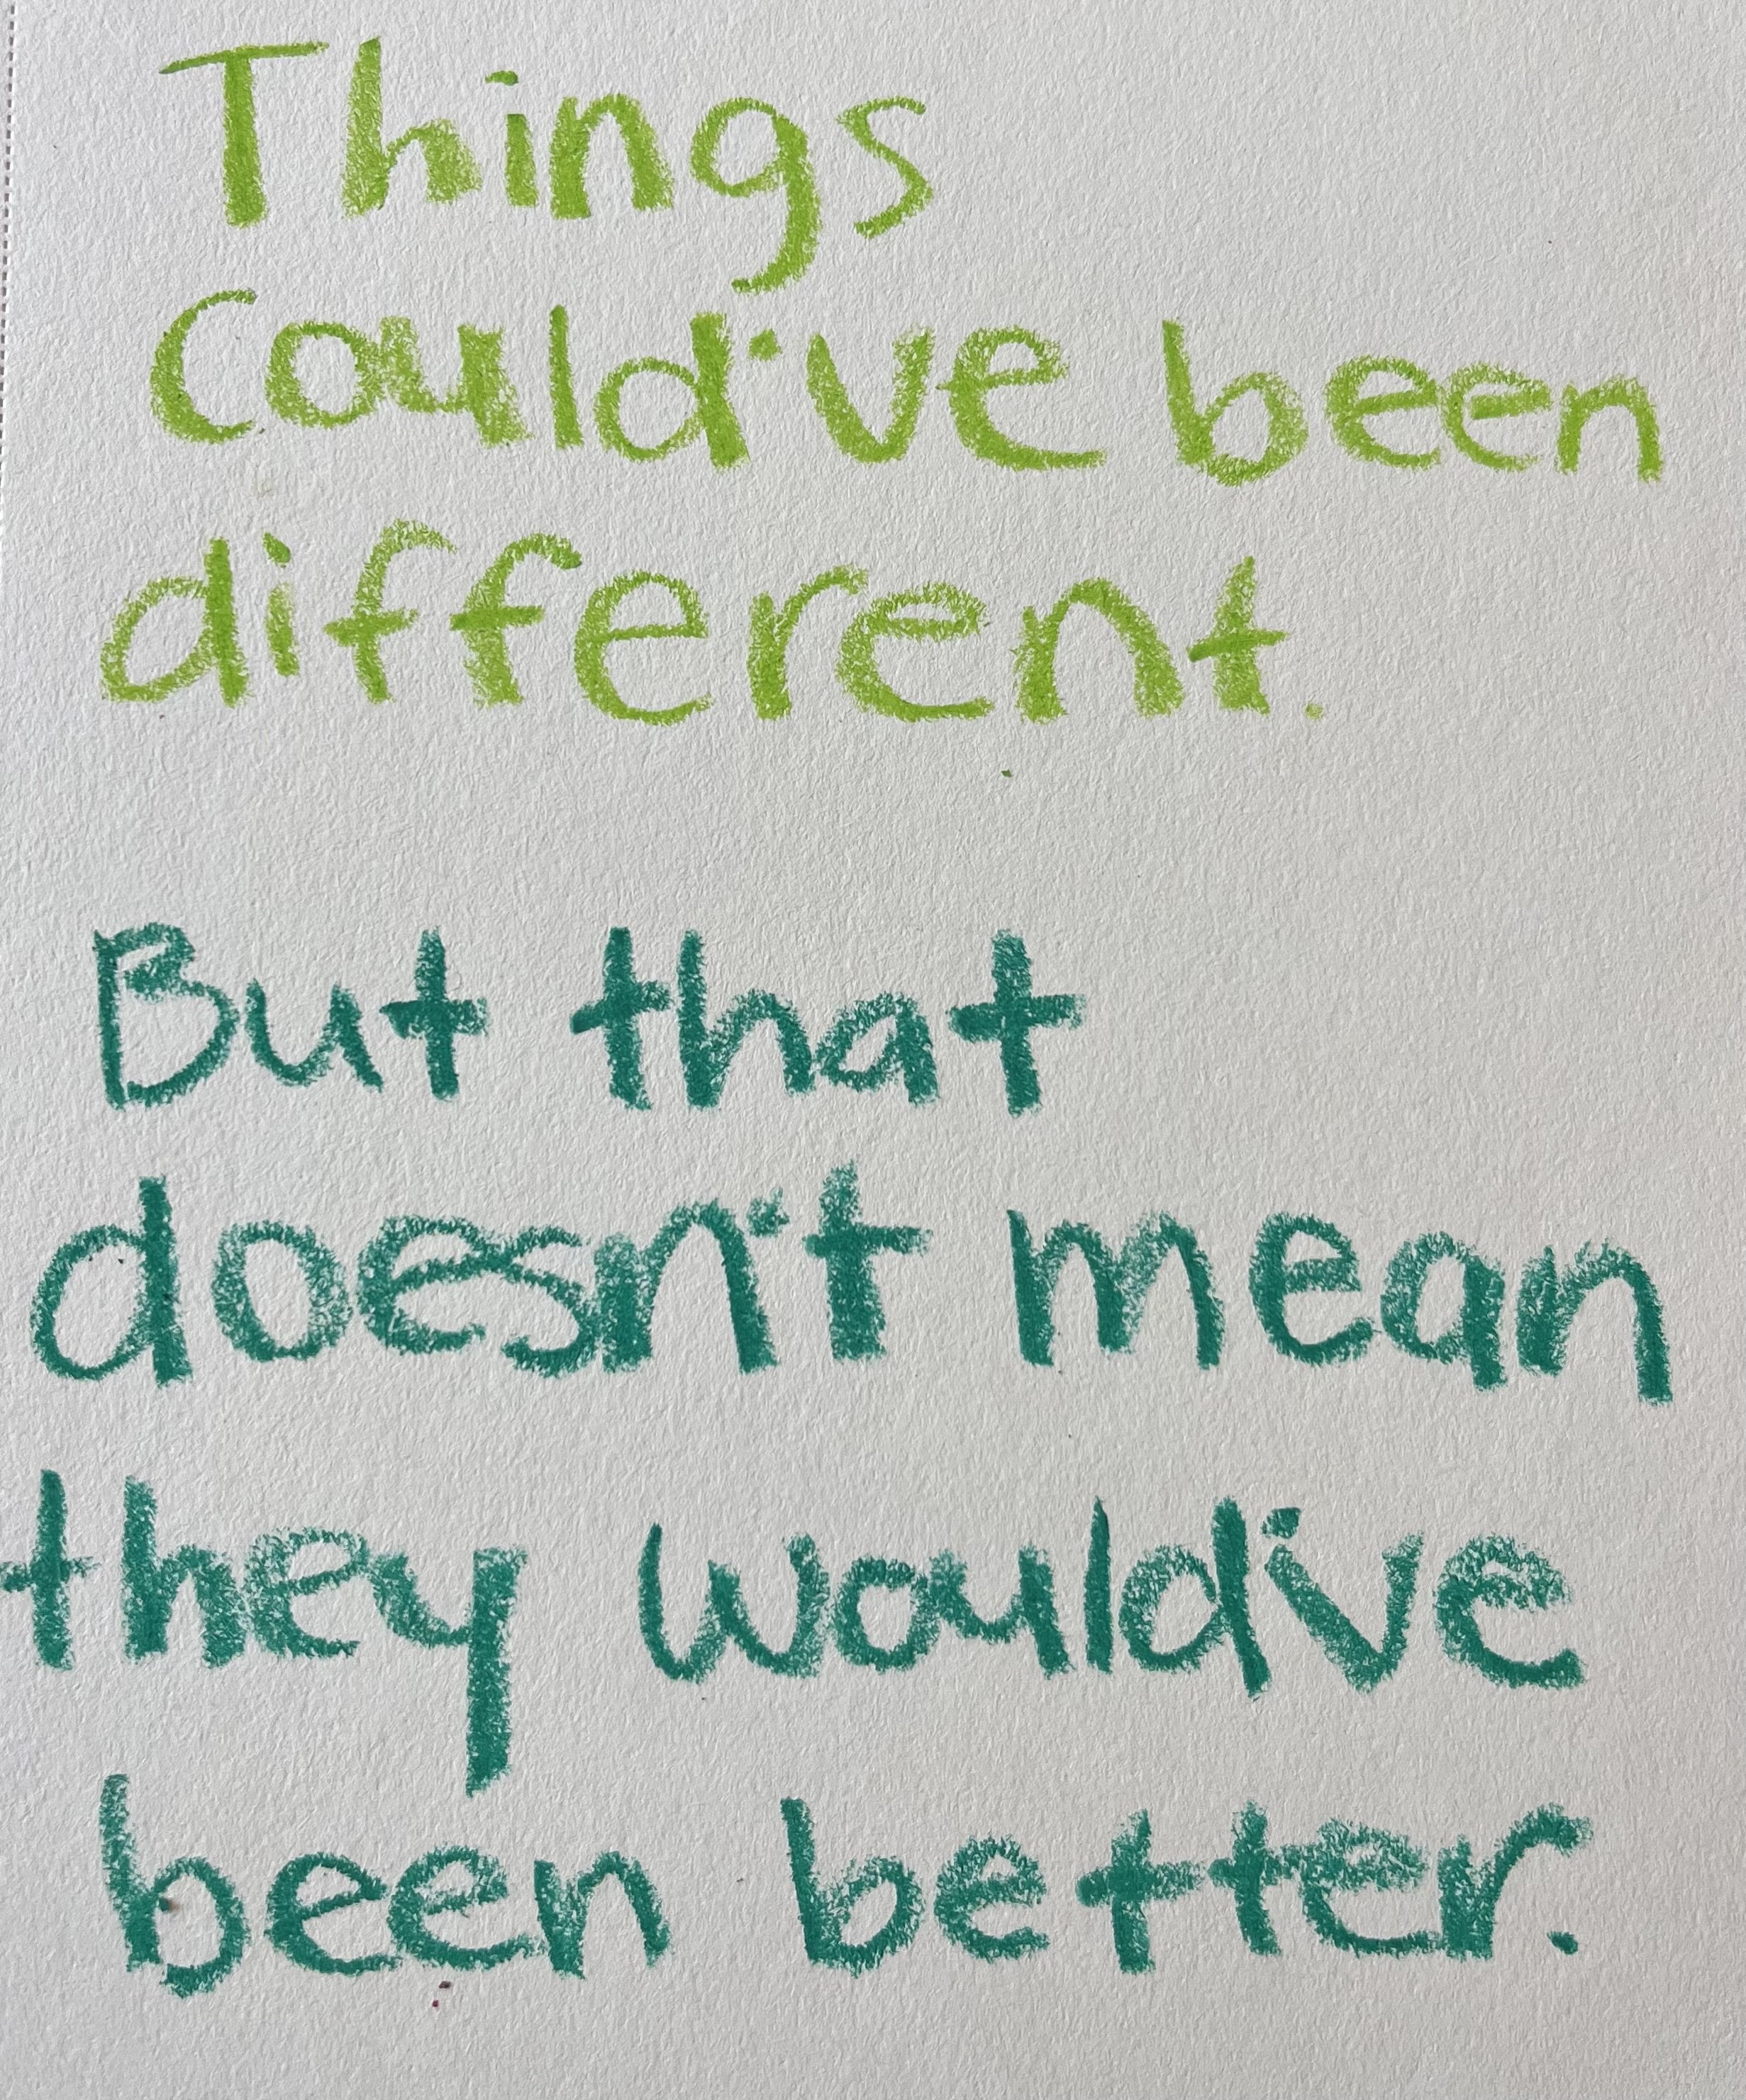 Things
could've been
different.
But that
doesn't mean
they would've
been better.